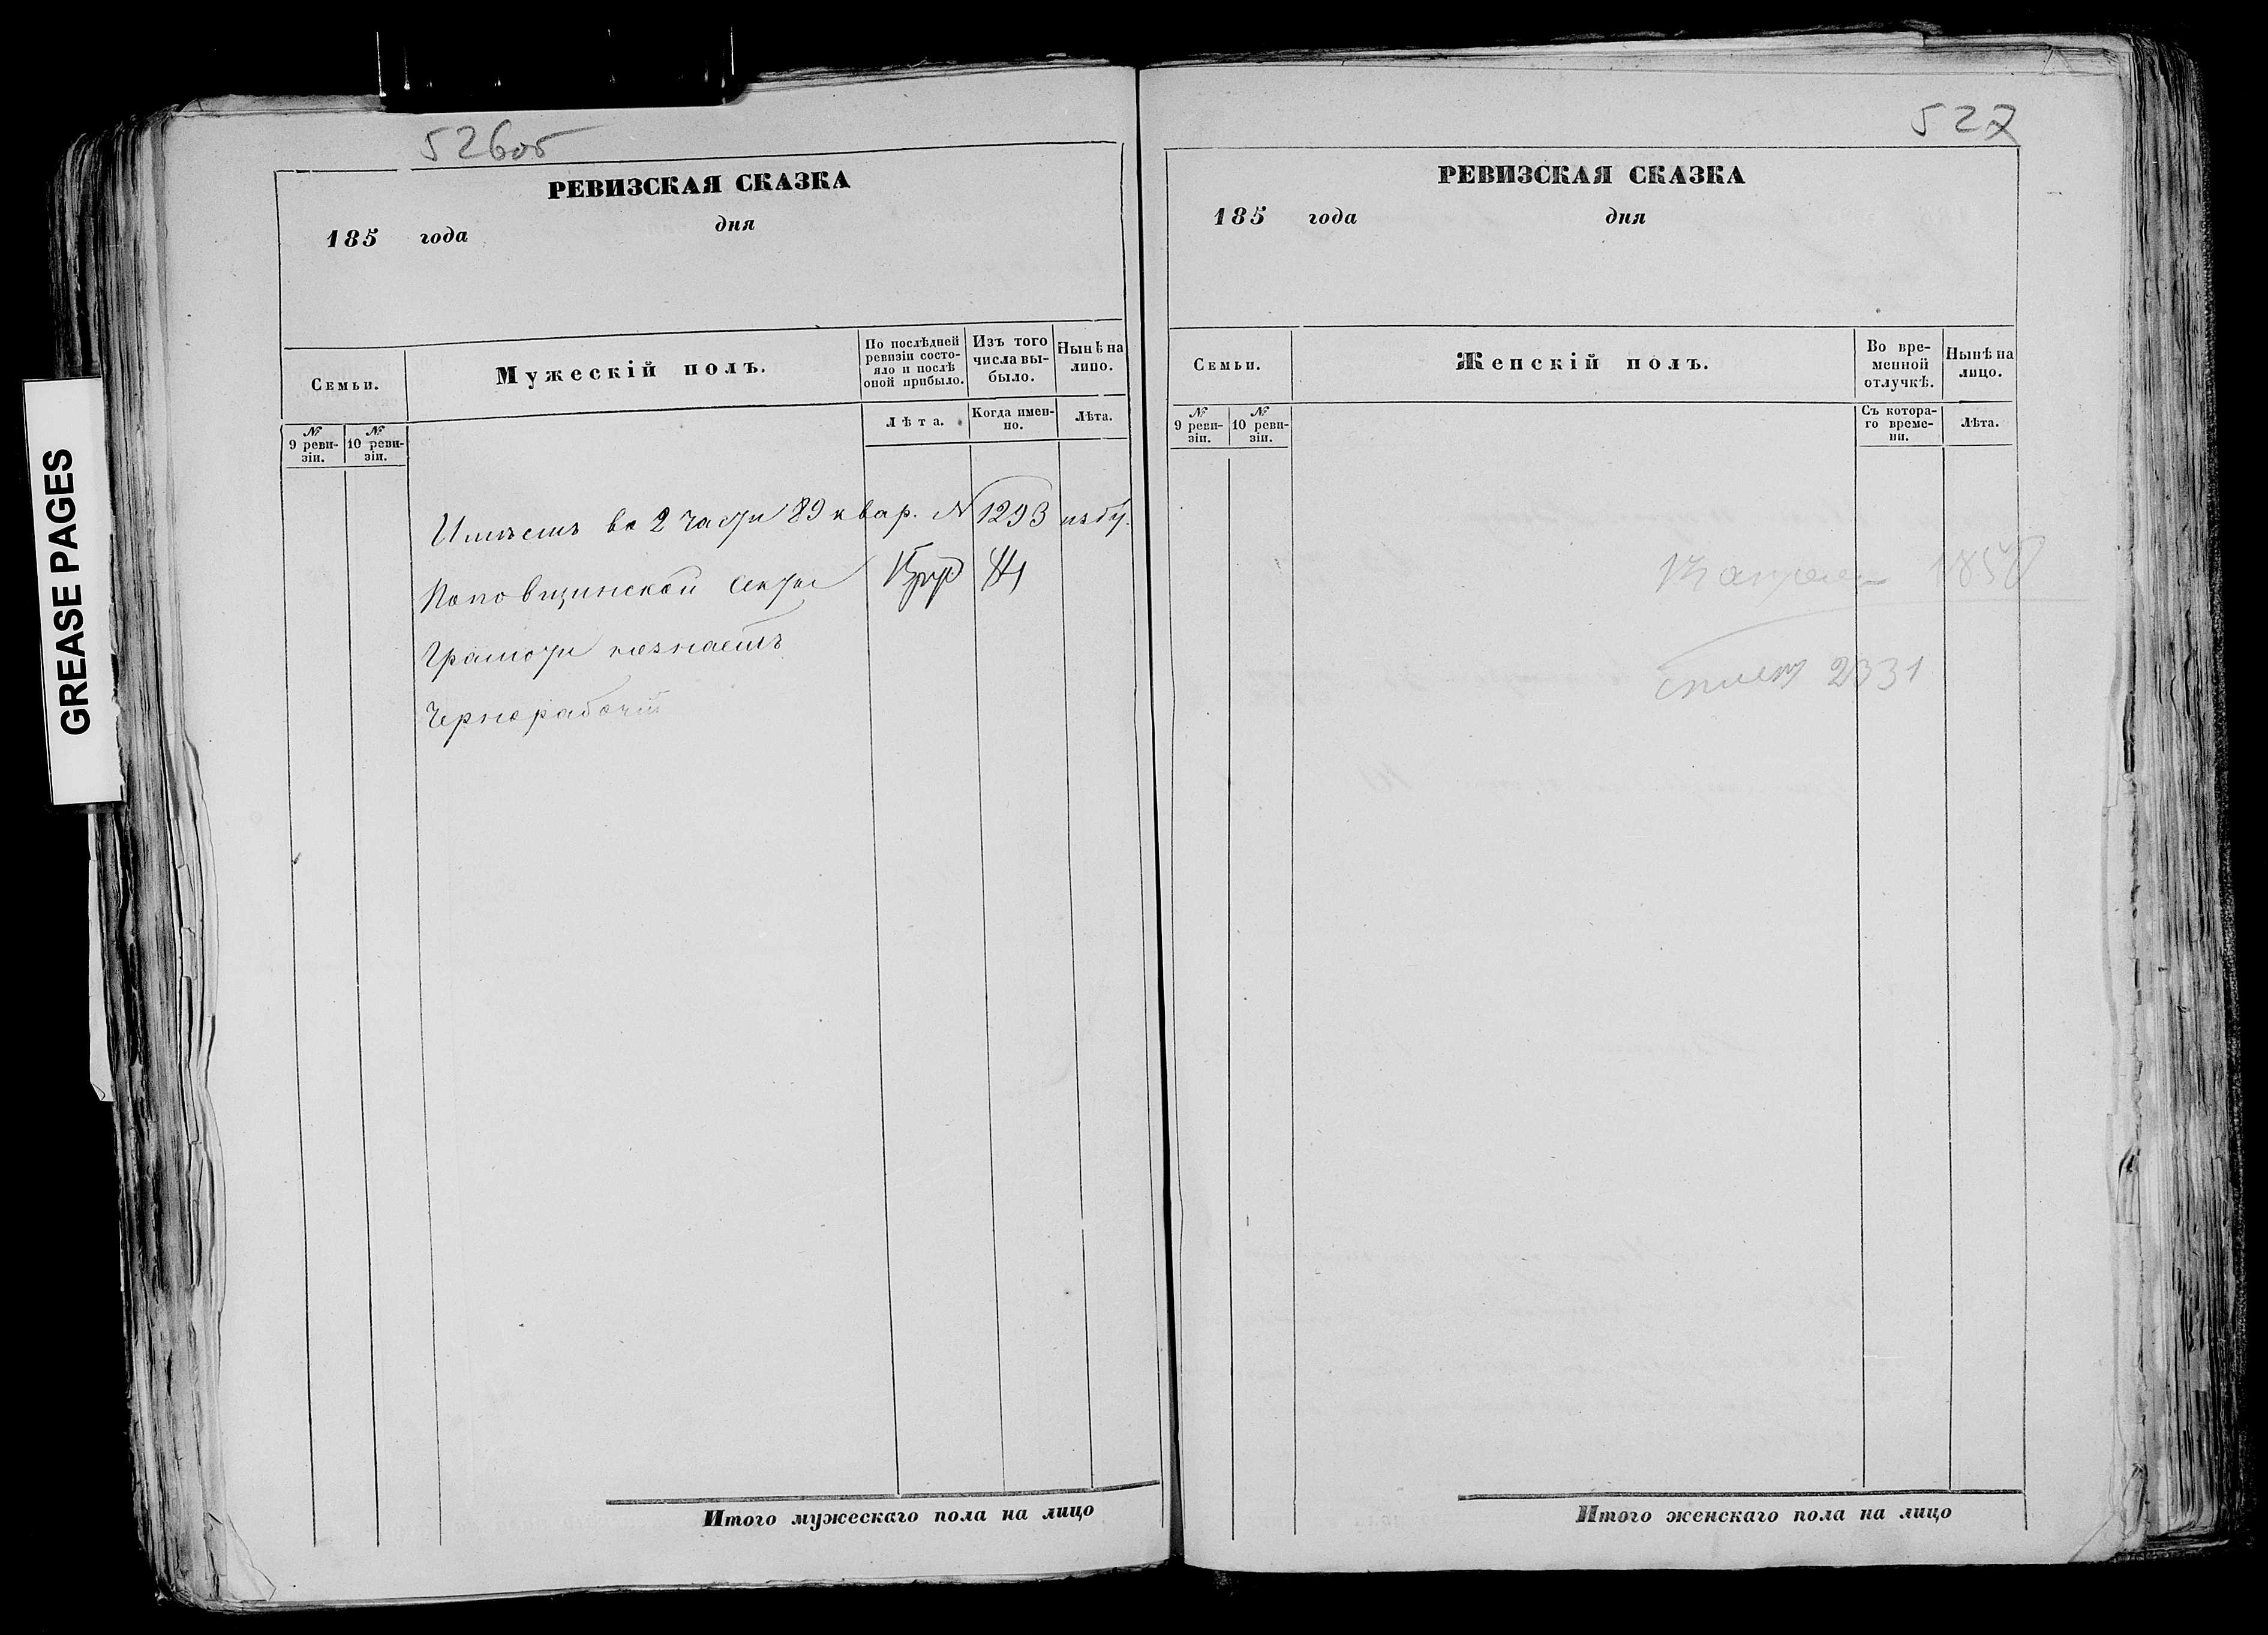 GREASE PAGES
526об
РЕВИЗСКАЯ СКАЗКА
185 года дня
Семьи.
Мужескій полъ.
По послѣдней ревизіи состояло и послѣ оной прибыло.
Изъ того числа выбыло.
Нынѣ на лицо.
№ 9 ревизіи.
№ 10 ревизіи.
Лѣта.
Когда именно.
Лѣта.
Имѣетъ во 2 части 89 квар. № 1293 избу.
Поповщинской секты
Грамоты незнаетъ
Чернорабочій
Итого мужескаго пола на лицо
527
РЕВИЗСКАЯ СКАЗКА
185 года дня
Семьи.
Женскій полъ.
Во временной отлучкѣ.
Нынѣ на лицо.
№ 9 ревизіи.
№ 10 ревизіи.
Съ котораго времени.
Лѣта.
апреля 1858
2331
Итого женскаго пола на лицо